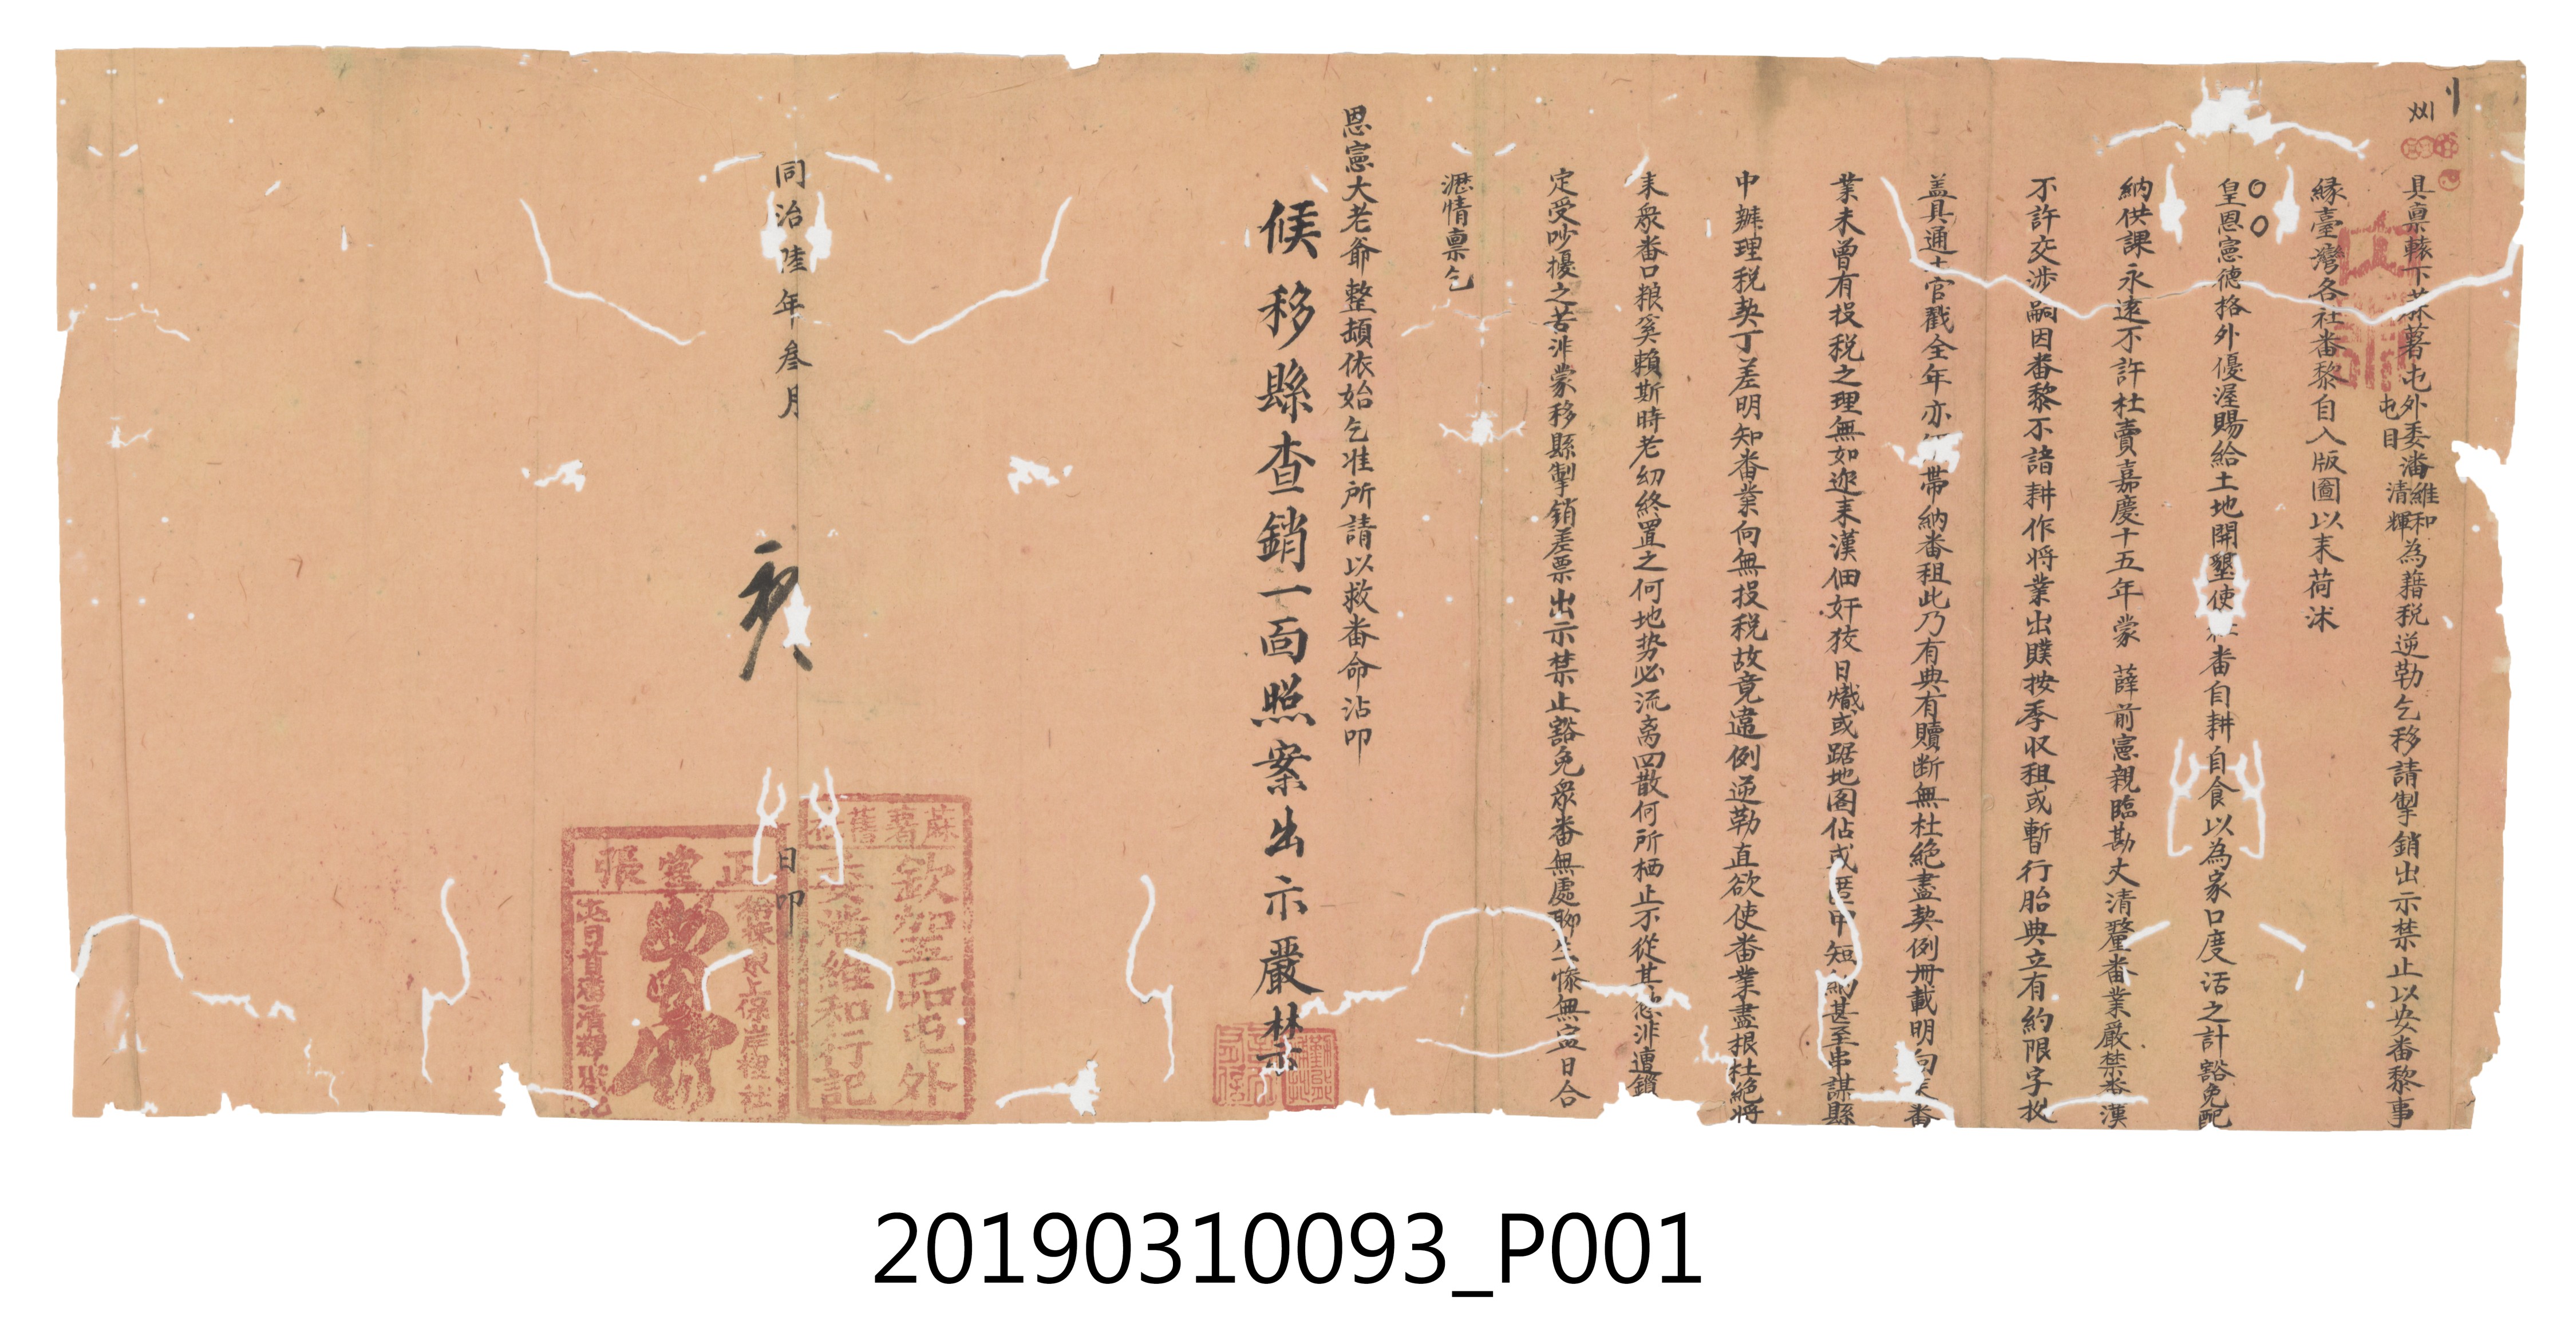 具稟轅下蔴薯屯外委潘維和為藉税逆勒乞移請掣銷出示禁止以安番黎事
屯目清輝
緣臺灣各社番黎自入版圖以来荷沐
皇恩憲德格外優渥賜給土地開墾使社番自耕自食以為家口度活之計豁免配
納供課永遠不許杜賣嘉慶十五年蒙 薛前憲親臨勘丈清釐番業嚴禁番漢
不許交涉嗣因番黎不諳耕作將業出贌按季收租或暫行胎典立有約限字扠
盖具通土官戳全年亦帶納番租此乃有典有贖断無杜絶盡契例冊載明向来番
業未曾有投税之理無如迩来漢佃奸狡日熾或踞地圖佔或匿甲短納甚至串謀縣
中辦理税契丁差明知番業向無投税故竟違例逆勒直欲使番業盡根杜絶將
来眾番口粮奚賴斯時老幼終置之何地势必流离四散何所栖止不從其慾非遭鎖
定受吵擾之苦非蒙移縣掣銷差票出示禁止豁免眾番無處聊生慘無寧日合
瀝情稟乞
恩憲大老爺整頓依始乞准所請以救番命沾叩
候移縣查銷一面照案出示嚴禁示
同治陸年叁月 日叩
張堂正
屯目首潘清輝戳記
蔴薯舊社
欽加五品屯外
委潘維和行記
20190310093_P001